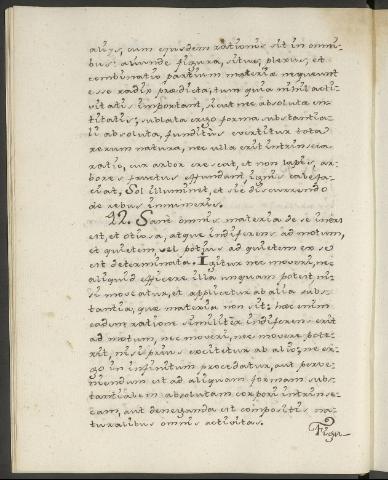 alijs, cum ejusdem rationis sit in omni-
bus: aliunde figura, situs, plexus, et
combinatio partium materiæ nequeunt
esse radix prædicta, tum quia nihil acti-
vitatis important, sicut nec absoluta en-
titatis; sublata ergo forma substantia-
li absoluta, funditus evertitur tota
rerum natura, nec ulla erit intrinseca
ratio, cur arbor crescat, et non lapis, ar-
bores fructus effundant, ignis calefa-
ciat, Sol illuminet, et sic discurrendo
de rebus innumeris.
22. Sanè omnis materia de se iners
est, et otiosa, atque indiferens ad motum,
et quietem, vel potius ad quietem ex se
est determinata. Igitur nec moveri, nec
aliquid efficere illa unquam potest, ni-
si moveatur, et applicetur ab alia subs-
tantia, quæ materia non sit: hæc enim
eadem ratione similitèr indiferens erit
ad motum, nec moveri, nec movere pote-
rit, nisi prius excitetur ab alio; ne er-
go in infinitum procedatur, aut perve-
niendum est ad aliquam formam subs-
tantialem absolutam corpori intrinse-
cam, aut deneganda est compositis na-
turalibus omnis activitas.
Figu-